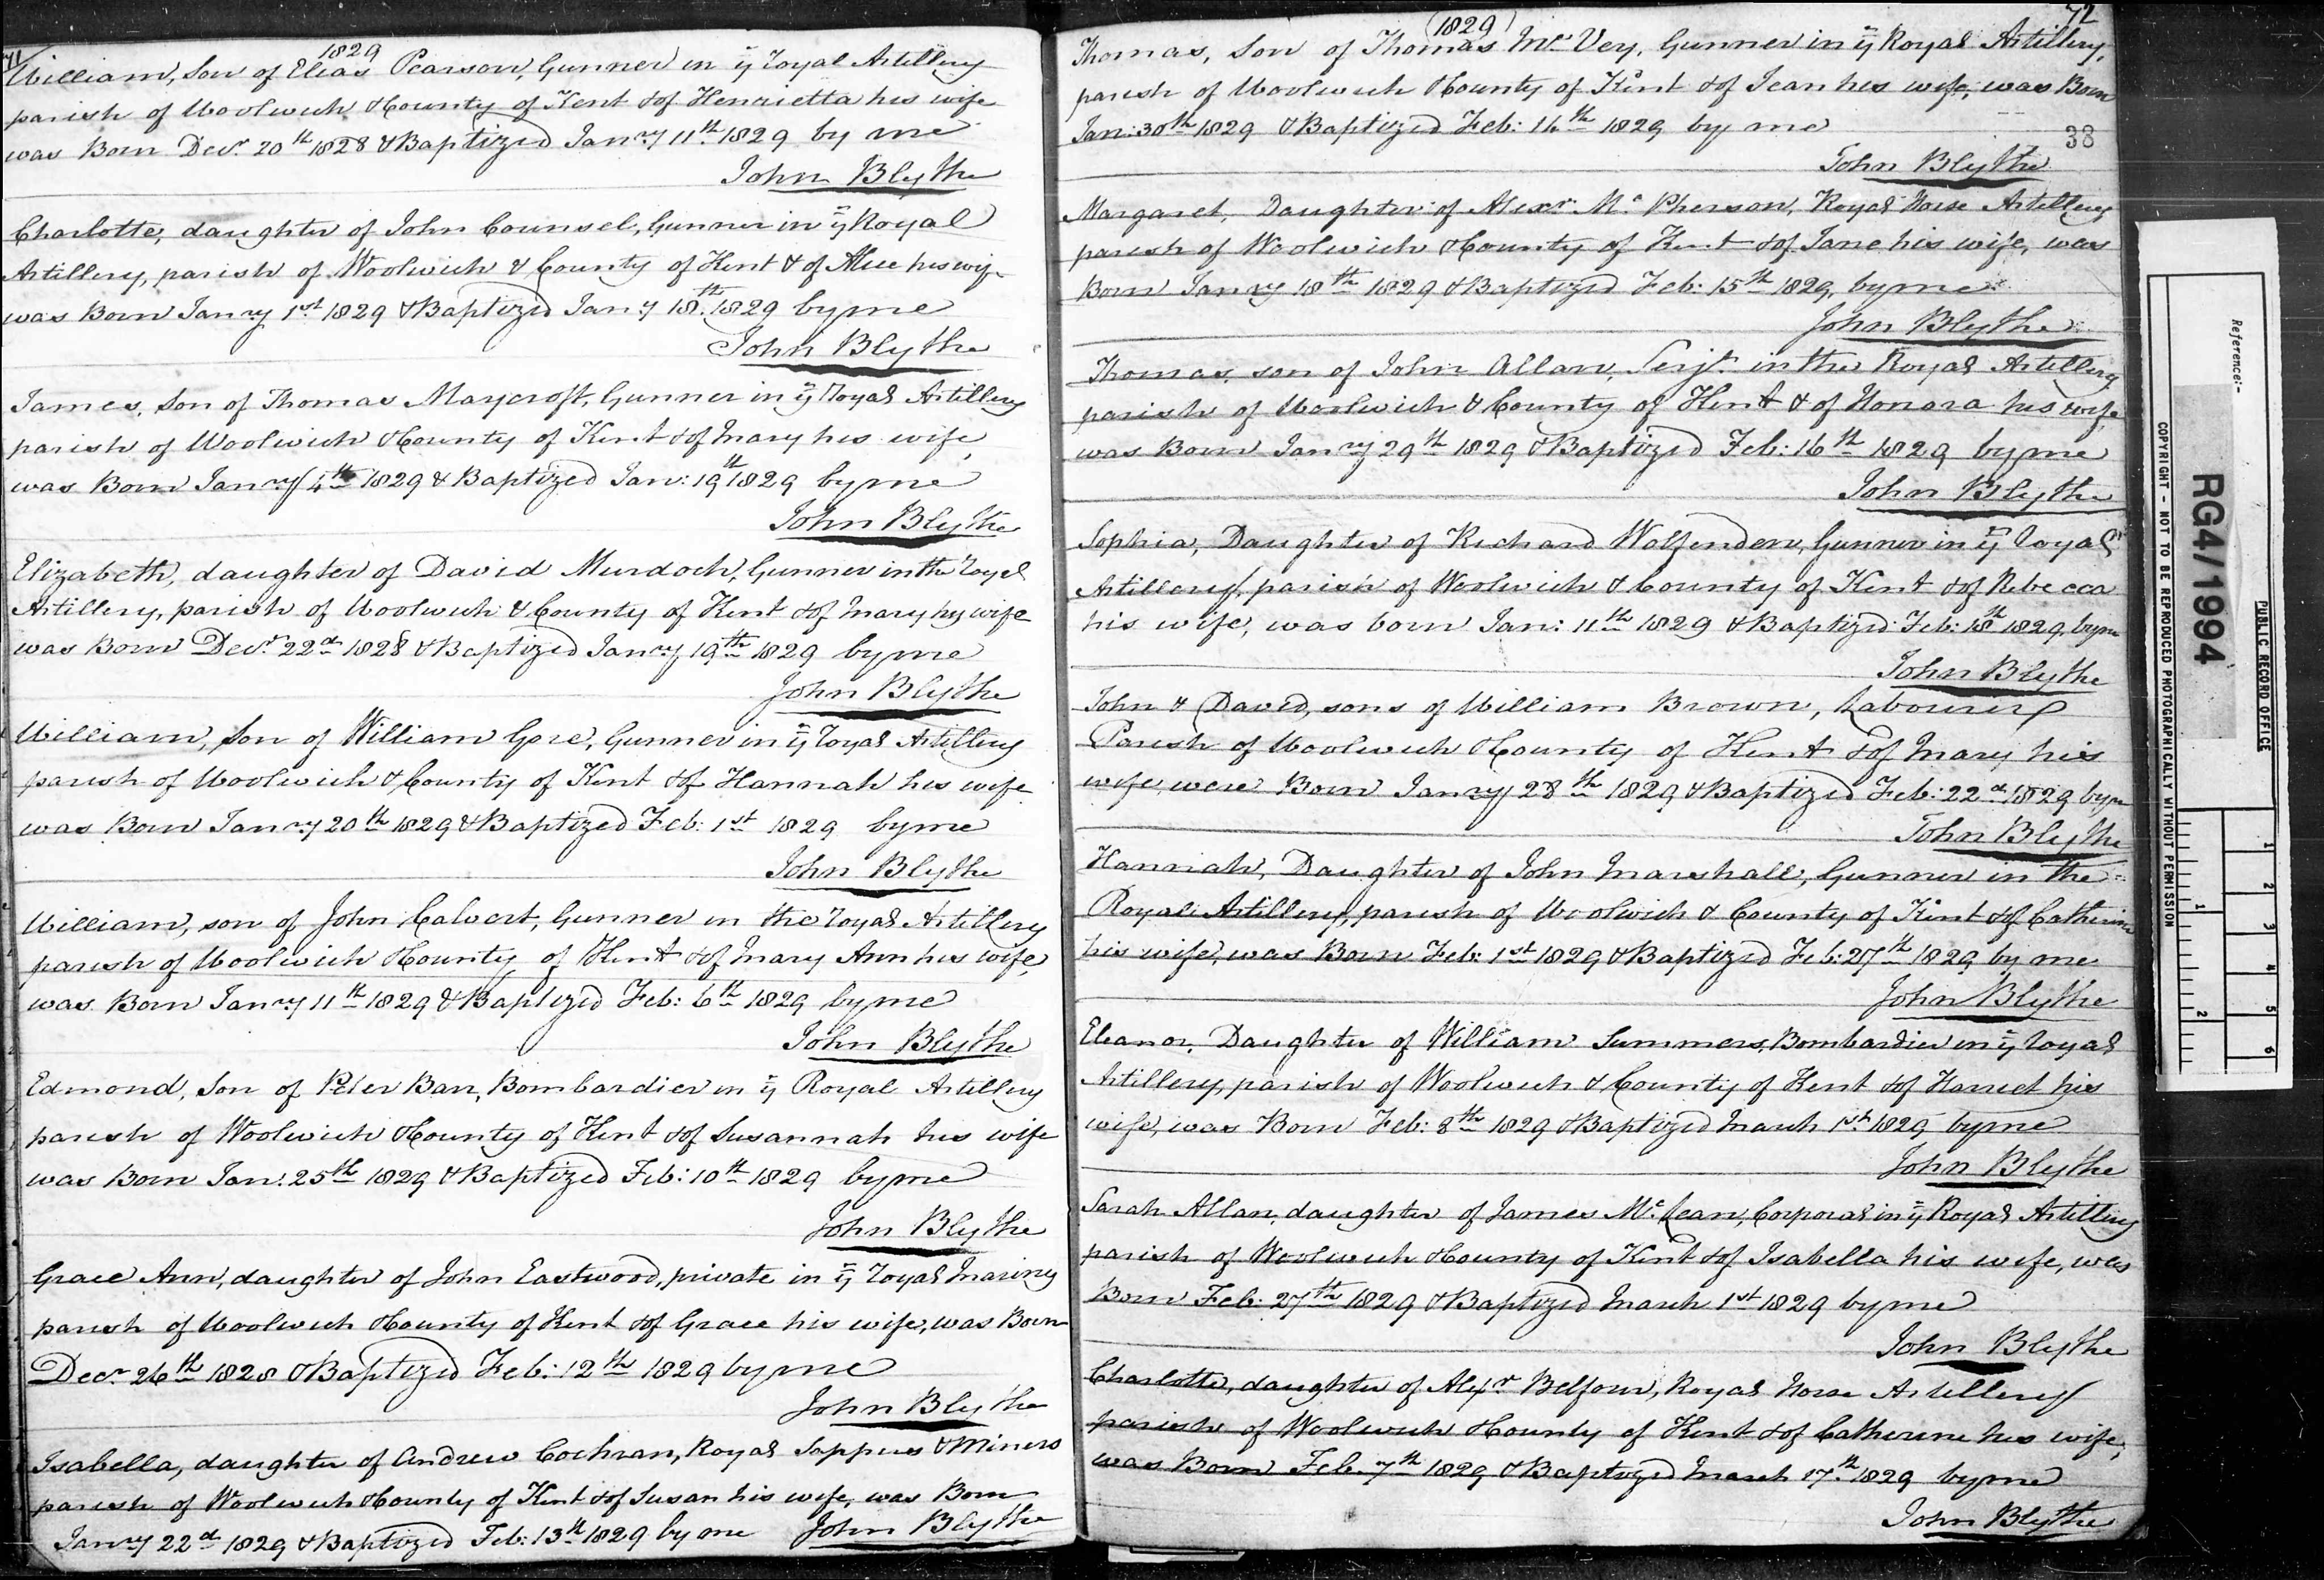 71
1829
William, Son of Elias Pearson, Gunner in ye Royal Artillery
parish of Woolwich & County of Kent & of Henrietta his wife
was Born Decr. 20th 1828 & Baptized Janry 11th 1829 by me
John Blythe
Charlotte, daughter of John Counsel, Gunner in ye Royal
Artillery, parish of Woolwich & County of Kent & of Alice his wife
was Born Janry 1st 1829 & Baptized Jany 18th 1829 by me
John Blythe
James, Son of Thomas Maycroft, Gunner in ye Royal Artillery
parish of Woolwich & County of Kent & of Mary his wife,
was Born Janry 4th 1829 & Baptized Jan: 19th 1829 by me
John Blythe
Elizabeth, daughter of David Murdoch, Gunner in the Royal
Artillery, parish of Woolwich & County of Kent & of Mary his wife
was Born Decr. 22d 1828 & Baptized Janry 19th 1829 by me
John Blythe
William, Son of William Gore, Gunner in ye Royal Artillery
parish of Woolwich & County of Kent & of Hannah his wife
was Born Janry 20th 1829 & Baptized Feb: 1st 1829 by me
John Blythe
William, son of John Calvert, Gunner in the Royal Artillery
parish of Woolwich & County of Kent & of Mary Ann his wife,
was Born Janry 11th 1829 & Baptized Feb: 6th 1829 by me
John Blythe
Edmond, Son of Peter Barr, Bombardier in ye Royal Artillery
parish of Woolwich & County of Kent & of Susannah his wife
was Born Jan: 25th 1829 & Baptized Feb: 10th 1829 by me
John Blythe
Grace Ann, daughter of John Eastwood, private in ye Royal Marines
parish of Woolwich & County of Kent & of Grace his wife, was Born
Decr 26th 1828 & Baptized Feb: 12th 1829 by me
John Blythe
Isabella, daughter of Andrew Cochran, Royal Sappers & Miners
parish of Woolwich & County of Kent & of Susan his wife, was Born
Janry 22d 1829 & Baptized Feb: 13th 1829 by me John Blythe
72
(1829)
Thomas, Son of Thomas Mc Vey, Gunner in ye Royal Artillery,
parish of Woolwich & County of Kent & of Jean his wife, was Born
Jan: 30th 1829 & Baptized Feb: 14th 1829 by me
38
John Blythe
Margaret, Daughter of Alexr. Mc Pherson, Royal Horse Artillery
parish of Woolwich & County of Kent & of Jane his wife, was
Born Janry 18th 1829 & Baptized Feb: 15th 1829, by me
John Blythe
Thomas, son of John Allan, Serjt. in the Royal Artillery
parish of Woolwich & County of Kent & of Honora his wife,
was Born Janry 29th 1829 & Baptized Feb: 16th 1829 by me
John Blythe
Sophia, Daughter of Richard Wolfenden, Gunner in ye Royal
Artillery, parish of Woolwich & County of Kent & of Rebecca
his wife, was born Jan: 11th 1829 & Baptized Feb: 18th 1829, by me
John Blythe
John & David, sons of William Brown, Labourer
Parish of Woolwich & County of Kent & of Mary his
wife, were Born Janry 28th 1829 & Baptized Feb: 22d 1829 by me
John Blythe
Hannah, Daughter of John Marshall, Gunner in the
Royal Artillery, parish of Woolwich & County of Kent & of Catherine
his wife, was Born Feb: 1st 1829 & Baptized Feb: 27th 1829 by me
John Blythe
Eleanor, Daughter of William Summers, Bombardier in ye Royal
Artillery, parish of Woolwich & County of Kent & of Harriet his
wife, was Born Feb: 8th 1829 & Baptized March 1st 1829 by me
John Blythe
Sarah Allan, daughter of James Mc Lean, Corporal in ye Royal Artillery
parish of Woolwich & County of Kent & of Isabella his wife, was
Born Feb: 27th 1829 & Baptized March 1st 1829 by me
John Blythe
Charlotte, daughter of Alexr Belfour, Royal Horse Artillery
parish of Woolwich & County of Kent & of Catherine his wife,
was Born Feb. 7th 1829 & Baptized March 17th 1829 by me
John Blythe
PUBLIC RECORD OFFICE
1 2 3 4 5 6
1 2
Reference:-
RG4/1994
COPYRIGHT - NOT TO BE REPRODUCED PHOTOGRAPHICALLY WITHOUT PERMISSION